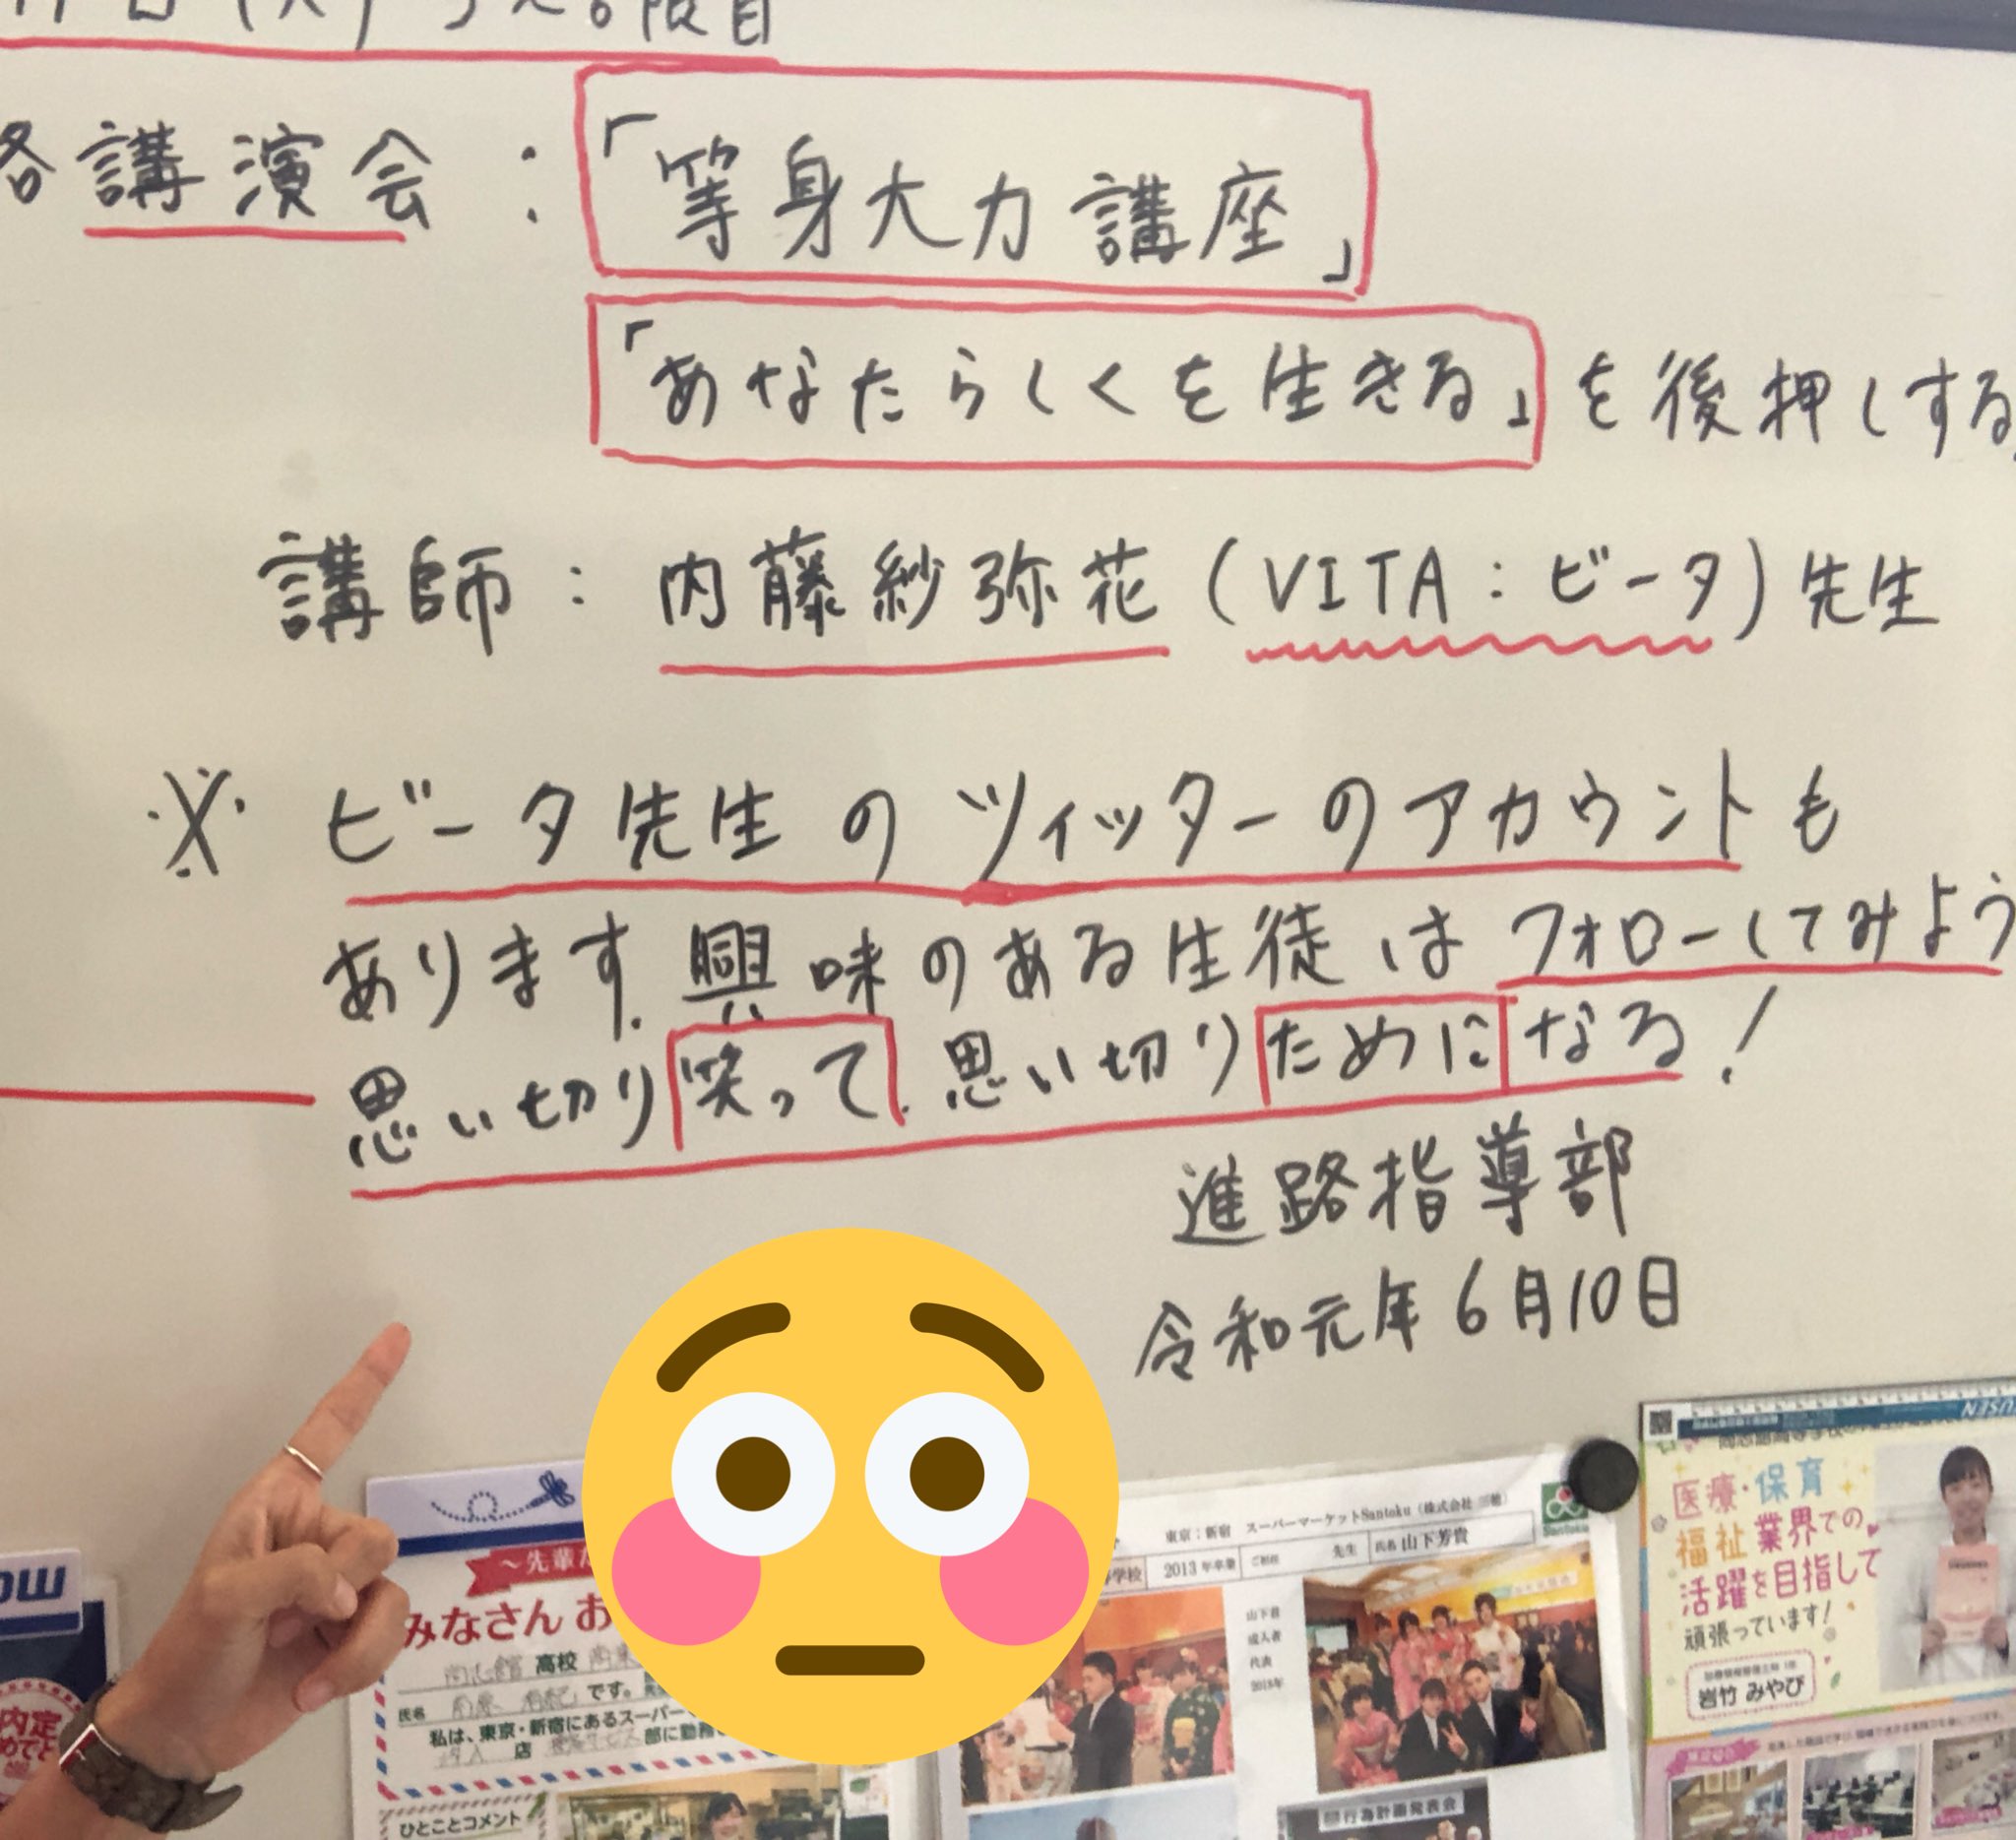 講演会：「等身大力講座」
「あなたらしくを生きる」を後押しする
講師：内藤紗弥花（VITA：ビータ）先生
※ビータ先生のツィッターのアカウントも
あります。興味のある生徒はフォローしてみよう
思い切り笑って、思い切りためになる！
進路指導部
令和元年6月10日
～先輩
みなさん お
高校
氏名
です。
私は、東京・新宿にあるスーパー
店
部に勤務
ひとことコメント
内定
東京：新宿 スーパーマーケットSantoku（株式会社
学校 2013年卒業 ご担任 先生 氏名 山下芳貴
山下君
成人者
代表
2018年
Santoku
行為計画発表会
医療・保育
福祉業界での
活躍を目指して
頑張っています！
岩竹 みやび